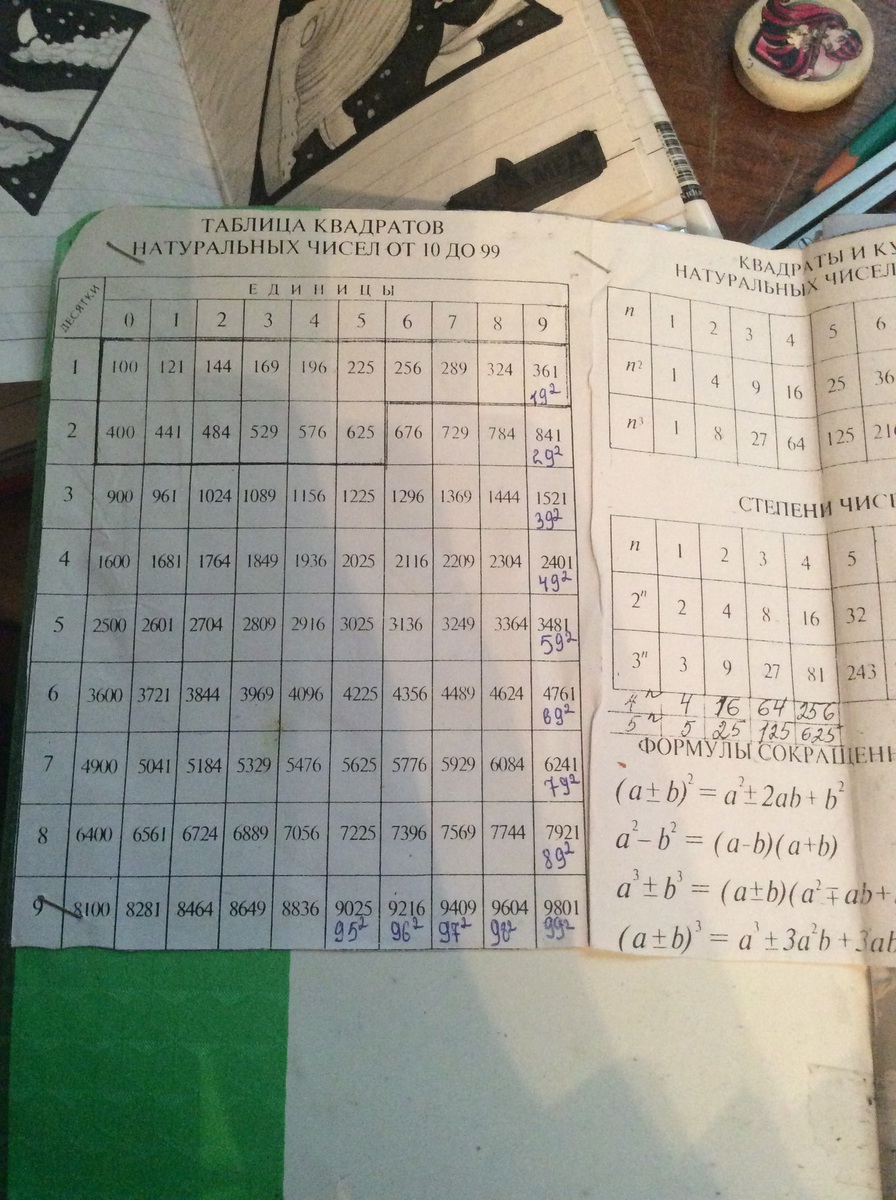 МЕД
ТАБЛИЦА КВАДРАТОВ
НАТУРАЛЬНЫХ ЧИСЕЛ ОТ 10 ДО 99
ДЕСЯТКИ
ЕДИНИЦЫ
0 1 2 3 4 5 6 7 8 9
1 100 121 144 169 196 225 256 289 324 361
19²
2 400 441 484 529 576 625 676 729 784 841
29²
3 900 961 1024 1089 1156 1225 1296 1369 1444 1521
39²
4 1600 1681 1764 1849 1936 2025 2116 2209 2304 2401
49²
5 2500 2601 2704 2809 2916 3025 3136 3249 3364 3481
59²
6 3600 3721 3844 3969 4096 4225 4356 4489 4624 4761
69²
7 4900 5041 5184 5329 5476 5625 5776 5929 6084 6241
79²
8 6400 6561 6724 6889 7056 7225 7396 7569 7744 7921
89²
9 8100 8281 8464 8649 8836 9025 9216 9409 9604 9801
95² 96² 97² 98² 99²
КВАДРАТЫ И КУ
НАТУРАЛЬНЫХ ЧИСЕЛ
n 1 2 3 4 5 6
n² 1 4 9 16 25 36
n³ 1 8 27 64 125 216
СТЕПЕНИ ЧИС
n 1 2 3 4 5
2ⁿ 2 4 8 16 32
3ⁿ 3 9 27 81 243
4ⁿ 4 16 64 256
5ⁿ 5 25 125 625
ФОРМУЛЫ СОКРАЩЕН
(a±b)² = a²±2ab+b²
a²-b² = (a-b)(a+b)
a³±b³ = (a±b)(a²∓ab+
(a±b)³ = a³±3a²b+3ab